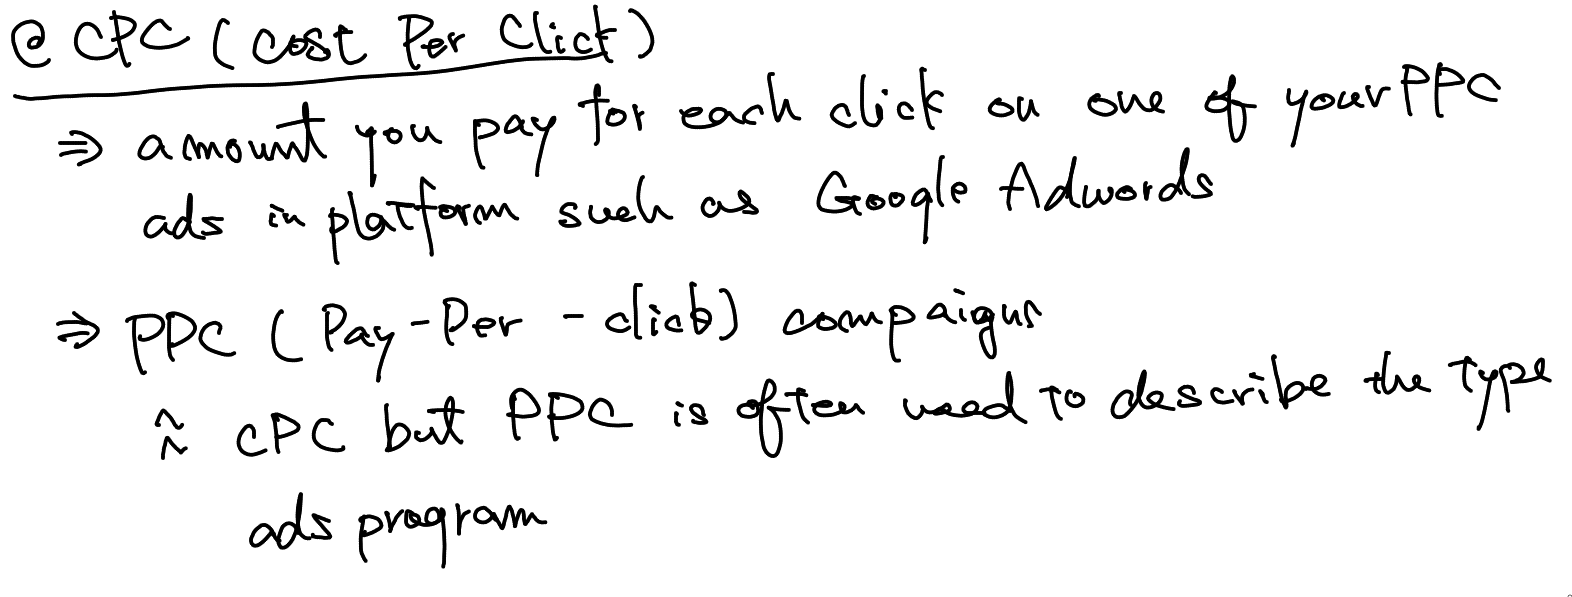 @ CPC (Cost Per Click)
⇒ amount you pay for each click on one of your PPC
ads in platform such as Google Adwords
⇒ PPC (Pay-Per-click) compaigns
≈ CPC but PPC is often used to describe the type
ads program